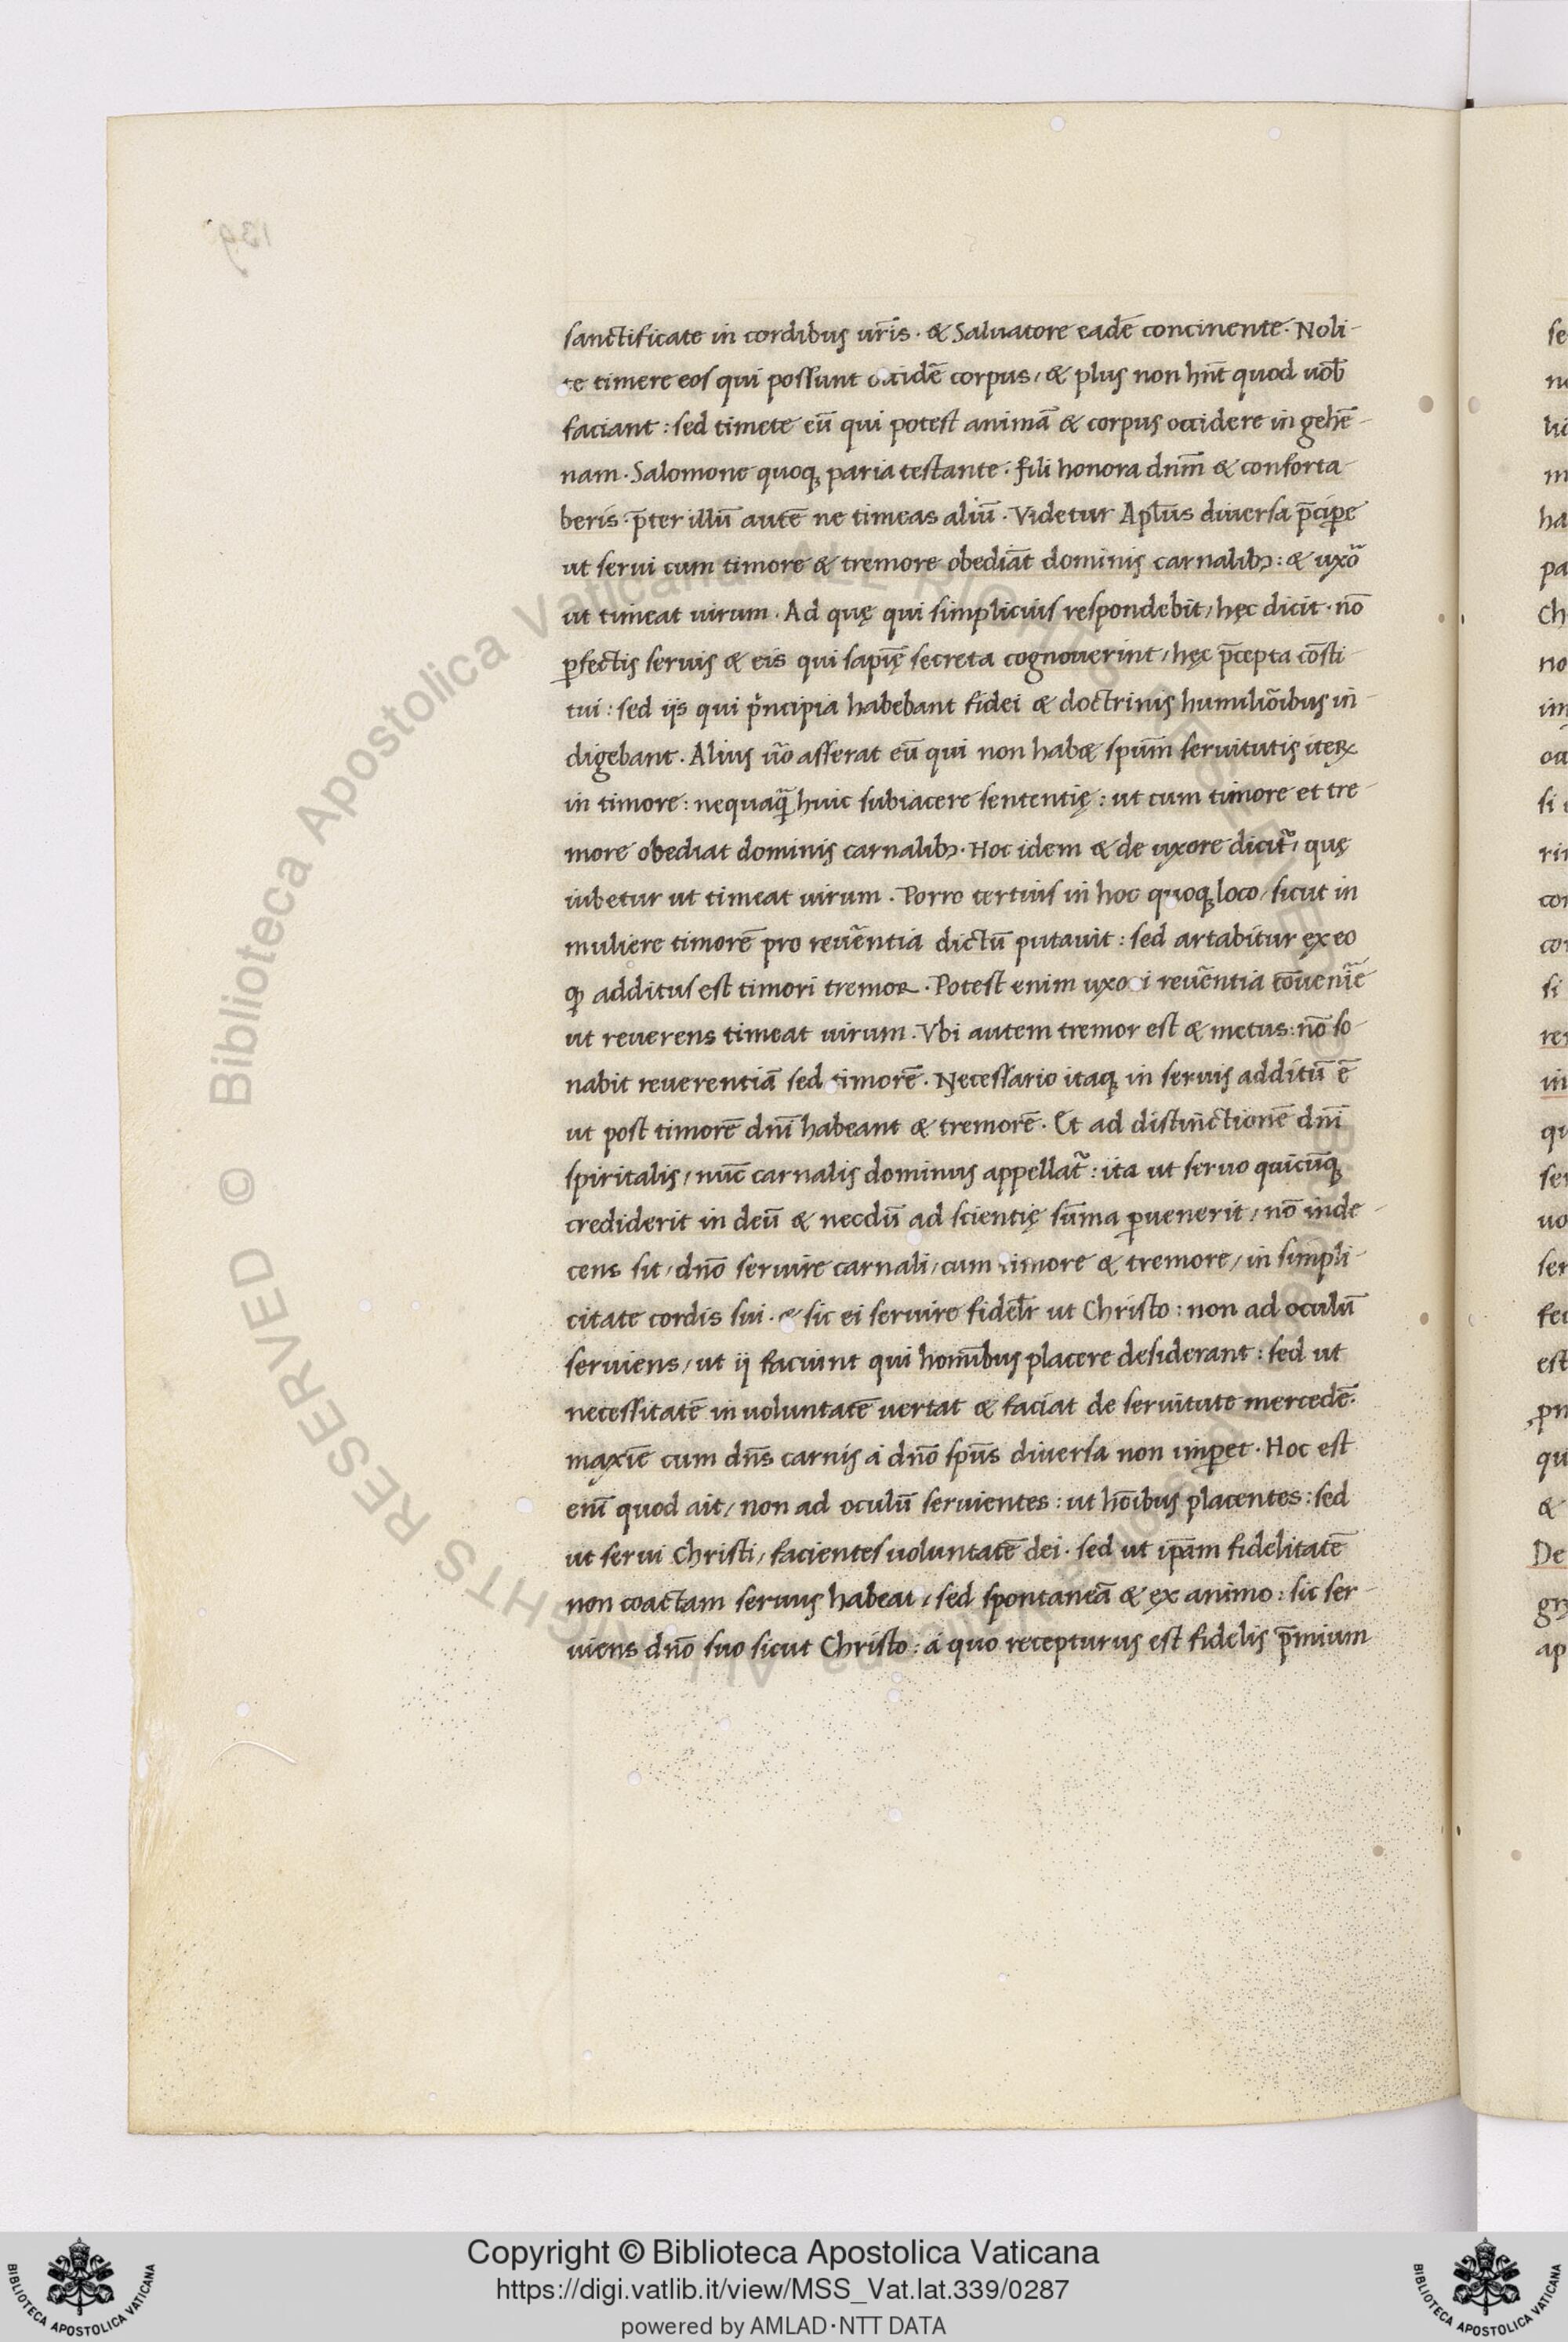 sanctificate in cordibus ur̅is · & Saluatore eade̅ concinente · Noli-
te timere eos qui possunt occide̅ corpus, & plus non hn̅t quod uob̅
faciant : sed timete eu̅ qui potest anima̅ & corpus occidere in gehe̅-
nam · Salomone quoq; paria testante · fili honora dnm̅ & conforta
beris · p̅ter illu̅ aute̅ ne timeas aliu̅ · Videtur Apl̅us diuersa p̅cipe
ut serui cum timore & tremore obedia̅t dominis carnalib; : & uxo̅
ut timeat uirum · Ad quę qui simplicius respondebit, hęc dicit · no̅
ꝑfectis seruis & eis qui sapię̅ secreta cognouerint, hęc p̅cepta co̅sti-
tui : sed iis qui pͥncipia habebant fidei & doctrinis humilio̅ibus in-
digebant · Alius u̅o asserat eu̅ qui non hab& spu̅m seruitutis iteꝝ
in timore : nequaqua̅ huic subiacere sententię : ut cum timore et tre-
more obediat dominis carnalib; · Hoc idem & de uxore dicit᷑, quę
iubetur ut timeat uirum · Porro tertius in hoc quoq; loco, sicut in
muliere timore̅ pro reue̅ntia dictu̅ putauit : sed artabitur ex eo
ꝙ additus est timori tremor · Potest enim uxori reue̅ntia co̅ueni̅e
ut reuerens timeat uirum · Vbi autem tremor est & metus : no̅ so-
nabit reuerentia̅ sed timore̅ · Necessario itaq; in seruis additu̅ e̅
ut post timore̅ dni̅ habeant & tremore̅ · Et ad distinctione̅ dni̅
spiritalis, nu̅c carnalis dominus appellat᷑ : ita ut seruo quicu̅q;
crediderit in deu̅ & necdu̅ ad scientię su̅ma ꝑuenerit, no̅ inde-
cens sit, dno̅ seruire carnali, cum timore & tremore, in simpli-
citate cordis sui · & sic ei seruire fidel̅r ut Christo : non ad oculu̅
seruiens, ut ii faciunt qui homi̅bus placere desiderant : sed ut
necessitate̅ in uoluntate̅ uertat & faciat de seruitute mercede̅ ·
maxi̅e cum dn̅s carnis à dno̅ spu̅s diuersa non imꝑet · Hoc est
eni̅ quod ait, non ad oculu̅ seruientes : ut ho̅ibus placentes : sed
ut serui Christi, facientes uoluntate̅ dei · sed ut ip̅am fidelitate̅
non coactam seruus habeat, sed spontanea̅ & ex animo : sic ser-
uiens dno̅ suo sicut Christo : à quo recepturus est fidelis p̅mium
Copyright © Biblioteca Apostolica Vaticana
https://digi.vatlib.it/view/MSS_Vat.lat.339/0287
powered by AMLAD·NTT DATA